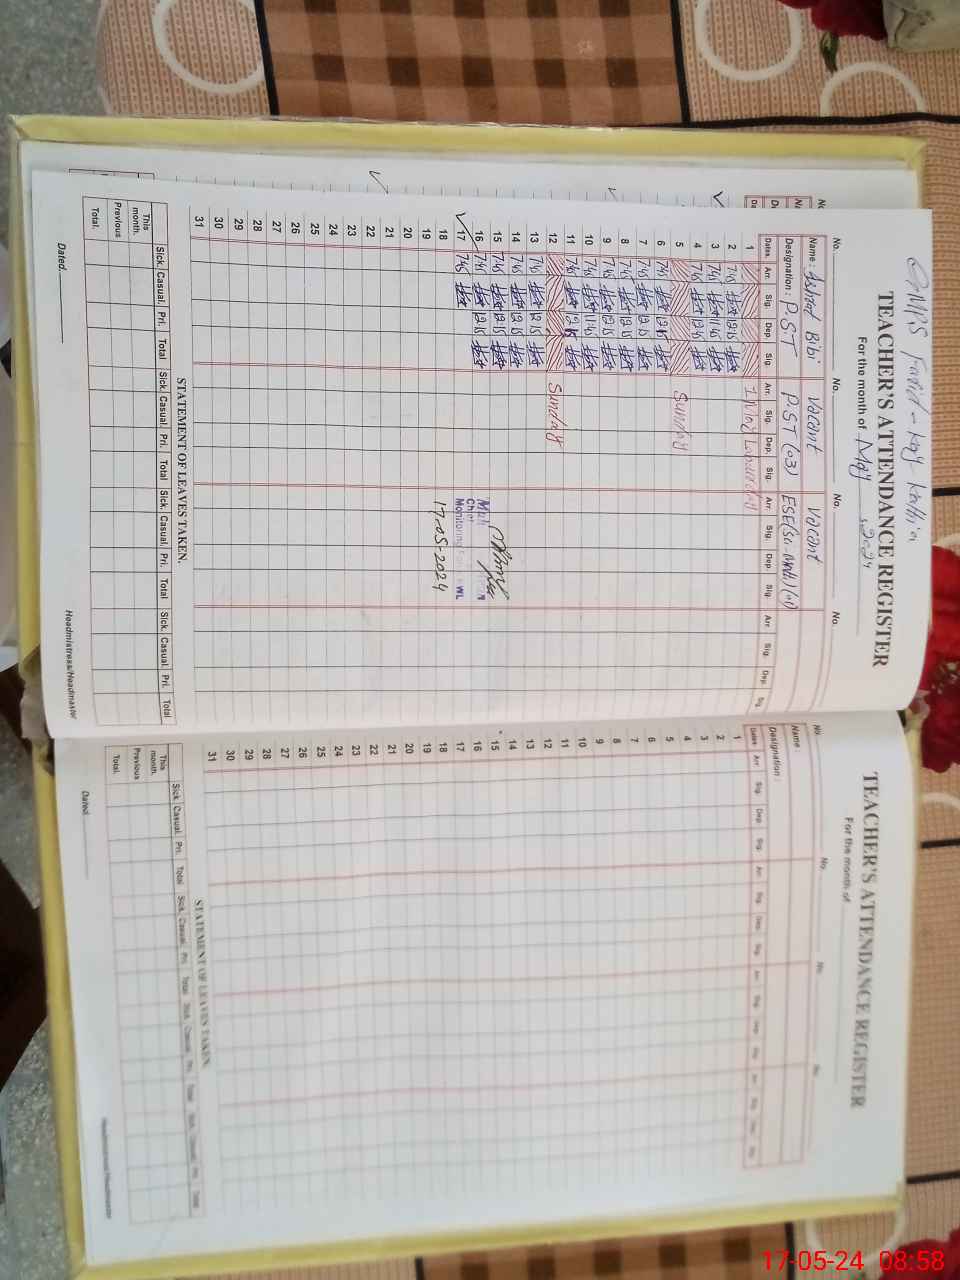 TEACHER'S ATTENDANCE REGISTER
For the month of May 2024
No. No. No. No.
Name : Bibi Vacant Vacant
Designation : P.S.T P.ST (03)
Dates. Arr. Sig. Dep. Sig. Arr. Sig. Dep. Sig. Arr. Sig. Dep. Sig. Arr. Sig. Dep. Sig.
1 1 May Labour day
2 7:45 12:15
3 7:45 11:45
4 7:45 12:15
5 Sunday
6 7:45 12:15
7 7:45 12:15
8 7:45 12:15
9 7:45 12:15
10 7:45 11:45
11 7:45 12:15
12 Sunday
13 7:45 12:15
14 7:45 12:15
15 7:45 12:15
16 7:45 12:15
17 7:45
Monitoring
18 17-05-2024
19
20
21
22
23
24
25
26
27
28
29
30
31
STATEMENT OF LEAVES TAKEN.
Sick. Casual. Pri. Total Sick. Casual. Pri. Total Sick. Casual. Pri. Total Sick. Casual. Pri. Total
This month.
Previous
Total.
Dated. Headmistress/Headmaster
TEACHER'S ATTENDANCE REGISTER
For the month of
No. No. No. No.
Name :
Designation :
Dates. Arr. Sig. Dep. Sig. Arr. Sig. Dep. Sig. Arr. Sig. Dep. Sig. Arr. Sig. Dep. Sig.
1
2
3
4
5
6
7
8
9
10
11
12
13
14
15
16
17
18
19
20
21
22
23
24
25
26
27
28
29
30
31
STATEMENT OF LEAVES TAKEN.
Sick. Casual. Pri. Total Sick. Casual. Pri. Total Sick. Casual. Pri. Total Sick. Casual. Pri. Total
This month.
Previous
Total.
Dated. Headmistress/Headmaster
17-05-24 08:58